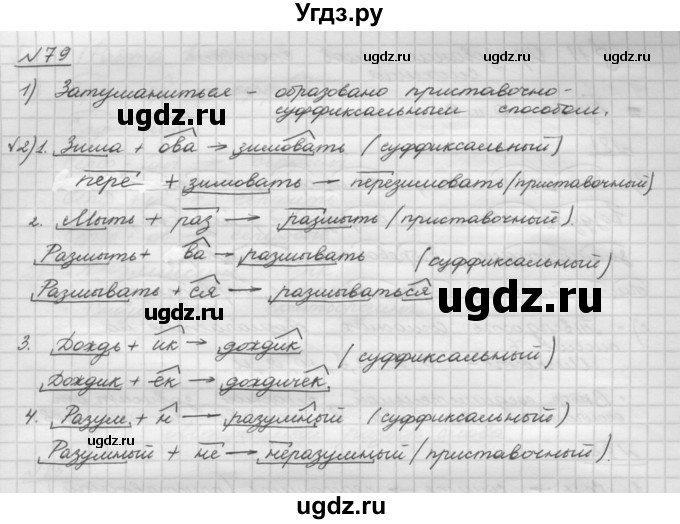 Угдз.ру
№79
1) Затуманиться - образовано приставочно-
суффиксальным способом.
√2) 1. Зима + ова → зимовать (суффиксальный)
пере + зимовать → перезимовать (приставочный)
2. Мыть + раз → размыть (приставочный).
Размыть + ва → размывать (суффиксальный)
Размывать + ся → размываться
3. Дождь + ик → дождик (суффиксальный)
Дождик + ек → дождичек.
4. Разум + н → разумный (суффиксальный)
Разумный + не → неразумный (приставочный).
ugdz.ru
ugdz.ru
ugdz.ru
ugdz.ru
ugdz.ru
ugdz.ru
ugdz.ru
ugdz.ru
ugdz.ru
ugdz.ru
ugdz.ru